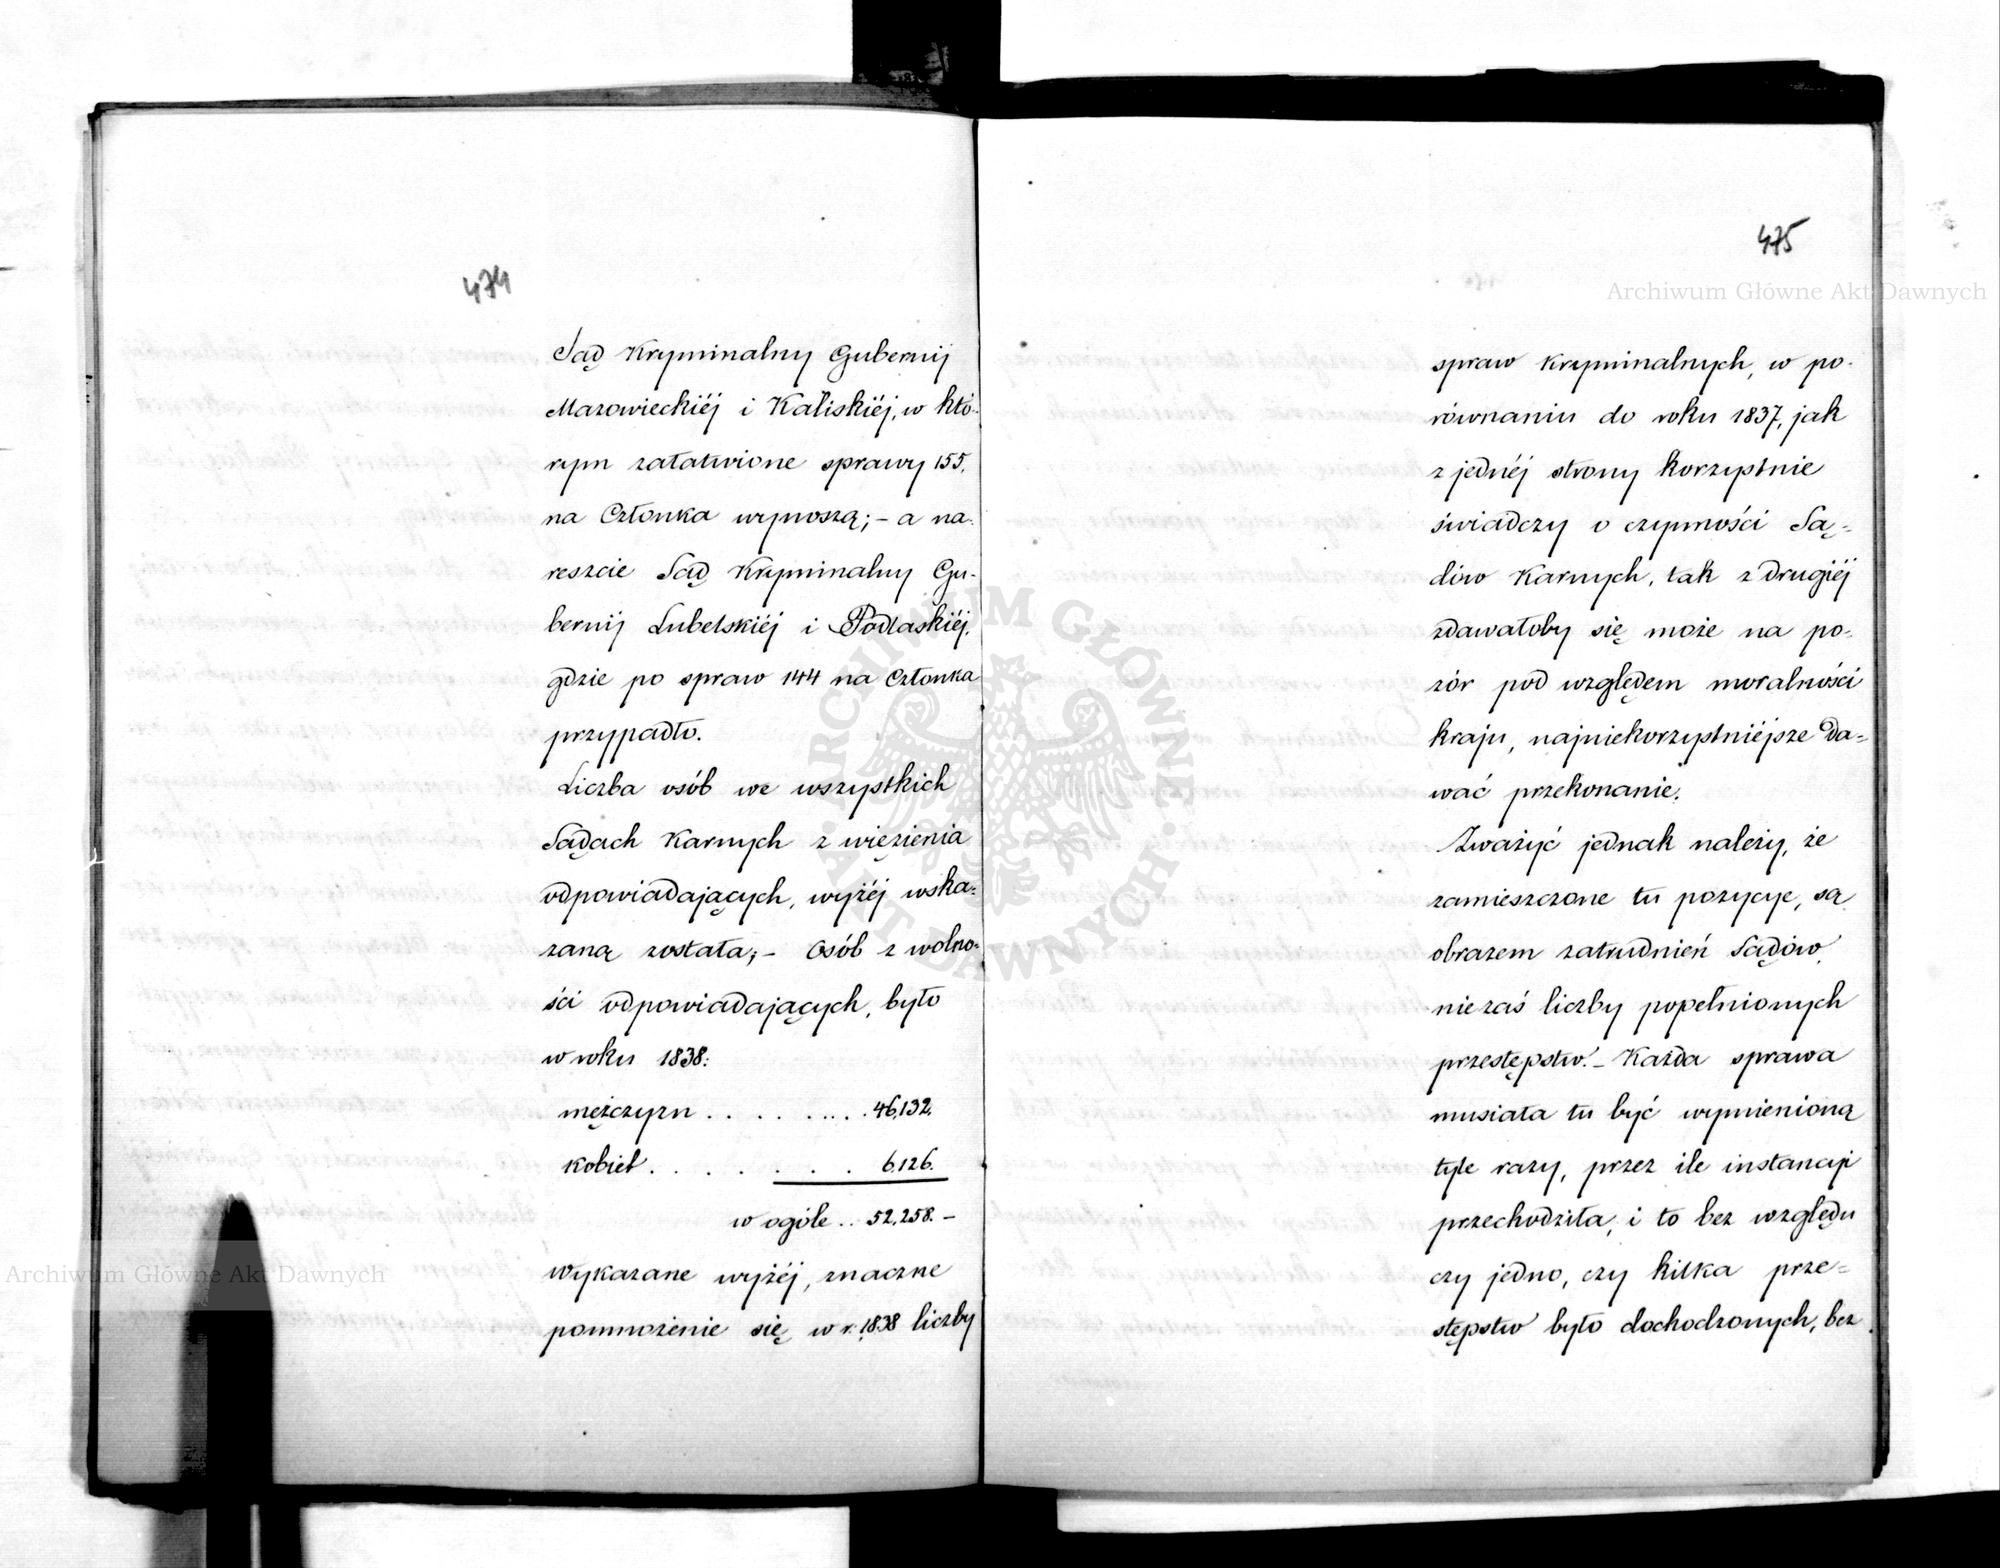 474
Sąd Kryminalny Gubernij
Mazowieckiéj i Kaliskiéj, w któ-
rym załatwione sprawy 155,
na Członka wynoszą; – a na-
reszcie Sąd Kryminalny Gu-
bernij Lubelskiéj i Podlaskiéj,
gdzie po spraw 144 na Członka
przypadło.
Liczba osób we wszystkich
Sądach Karnych z więzienia
odpowiadających, wyżéj wska-
zaną została; – Osób z wolno-
ści odpowiadających, było
w roku 1838:
mężczyzn . . . . . . . . 46,132.
kobiet . . . . . . . 6,126.
w ogóle . . 52,258. –
Wykazane wyżéj, znaczne
pomnożenie się w r. 1838 liczby
475
spraw kryminalnych, w po-
równaniu do roku 1837, jak
z jednéj strony korzystnie
świadczy o czynności Są-
dów Karnych, tak z drugiéj
zdawałoby się może na po-
zór pod względem moralności
kraju, najniekorzystniéjsze da-
wać przekonanie.
Zważyć jednak należy, że
zamieszczone tu pozycye, są
obrazem zatrudnień Sądów,
nie zaś liczby popełnionych
przestępstw. – Każda sprawa
musiała tu być wymienioną
tyle razy, przez ile instancyi
przechodziła, i to bez względu
czy jedno, czy kilka prze-
stępstw było dochodzonych, bez
Archiwum Główne Akt Dawnych
Archiwum Główne Akt Dawnych
· ARCHIWUM GŁÓWNE · AKT DAWNYCH